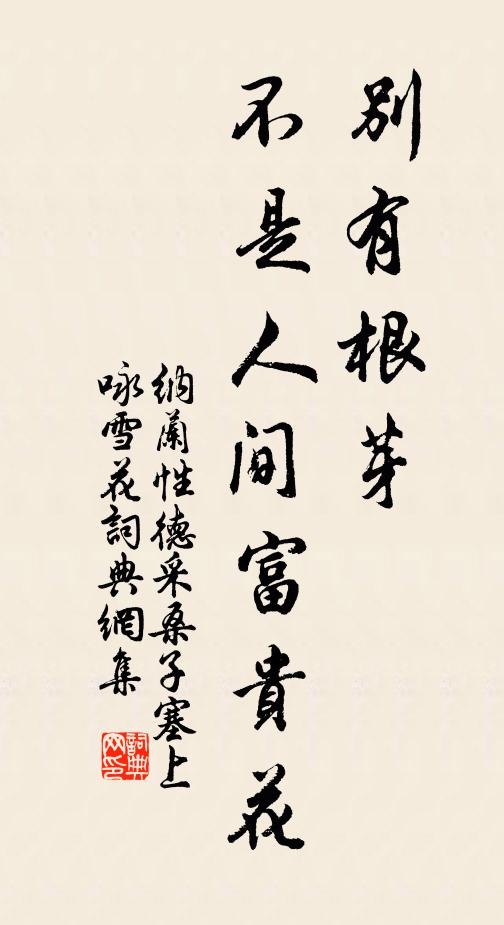 别有根芽
不是人间富貴花
納蘭性德采桑子塞上
咏雪花詞典網集
詞典
网印